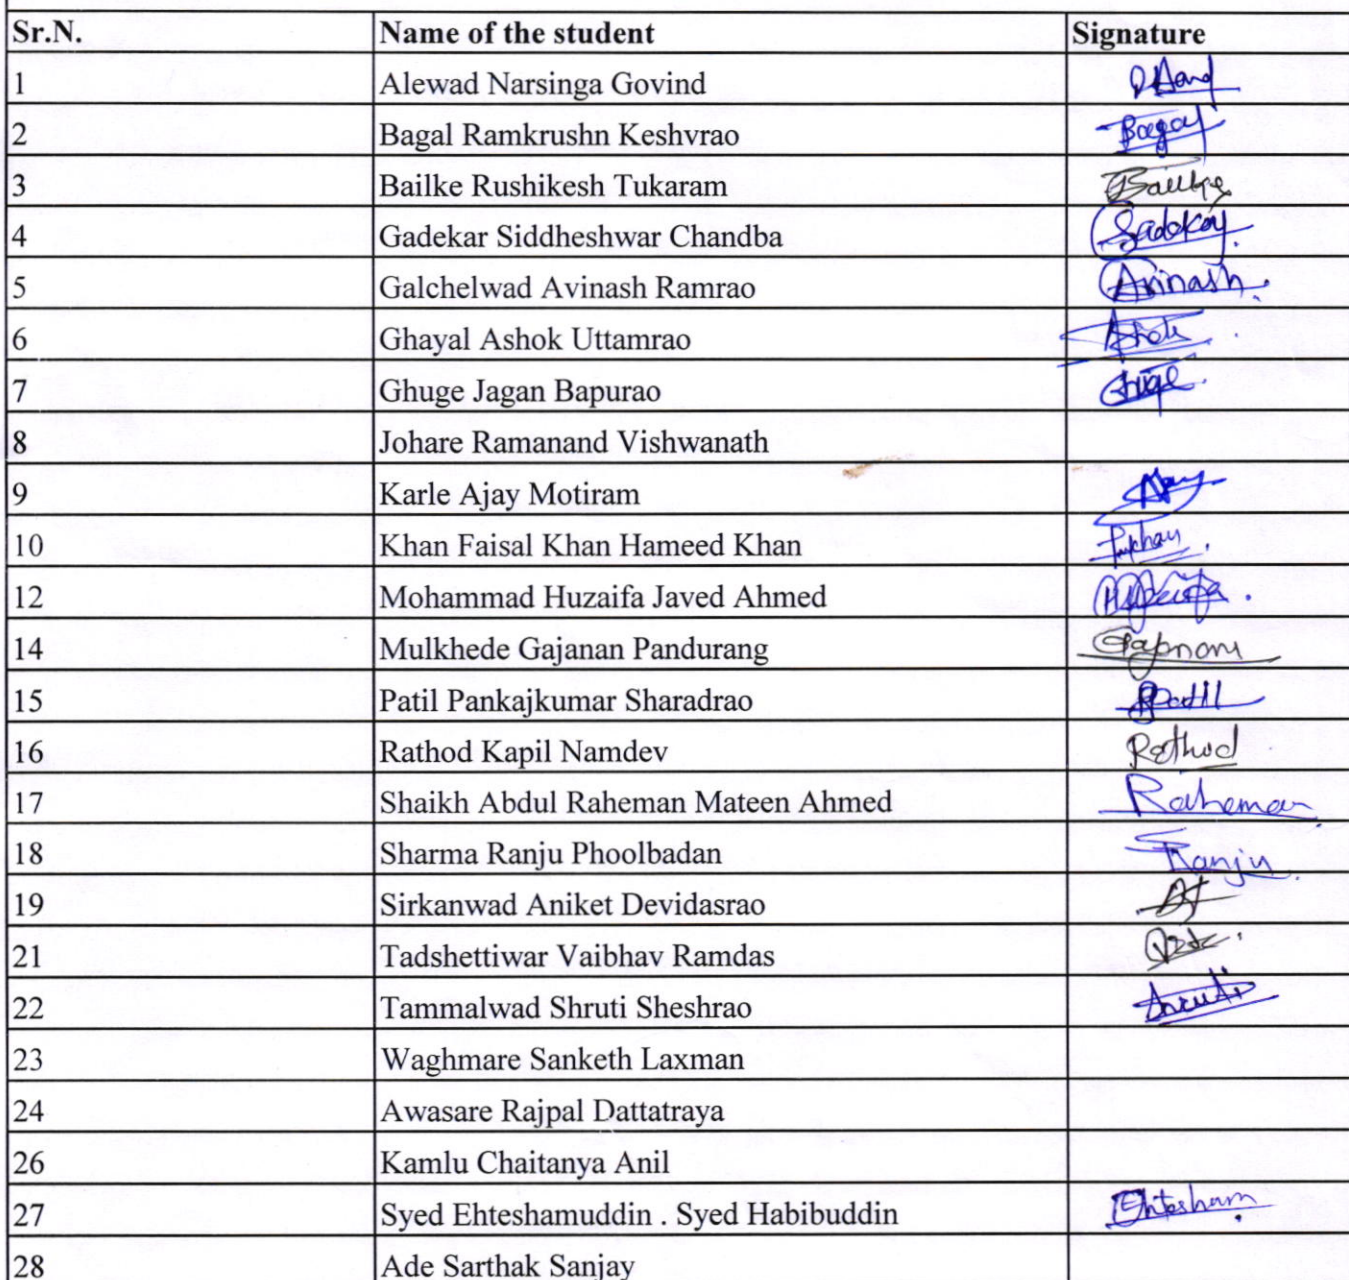 Sr.N. Name of the student Signature
1 Alewad Narsinga Govind
2 Bagal Ramkrushn Keshvrao Bagal
3 Bailke Rushikesh Tukaram Bailke
4 Gadekar Siddheshwar Chandba Gadekar
5 Galchelwad Avinash Ramrao Avinash
6 Ghayal Ashok Uttamrao Ashok
7 Ghuge Jagan Bapurao Ghuge
8 Johare Ramanand Vishwanath
9 Karle Ajay Motiram Ajay
10 Khan Faisal Khan Hameed Khan
12 Mohammad Huzaifa Javed Ahmed
14 Mulkhede Gajanan Pandurang
15 Patil Pankajkumar Sharadrao Patil
16 Rathod Kapil Namdev Rathod
17 Shaikh Abdul Raheman Mateen Ahmed Raheman
18 Sharma Ranju Phoolbadan Ranju
19 Sirkanwad Aniket Devidasrao
21 Tadshettiwar Vaibhav Ramdas
22 Tammalwad Shruti Sheshrao Shruti
23 Waghmare Sanketh Laxman
24 Awasare Rajpal Dattatraya
26 Kamlu Chaitanya Anil
27 Syed Ehteshamuddin . Syed Habibuddin Ehtesham
28 Ade Sarthak Sanjay